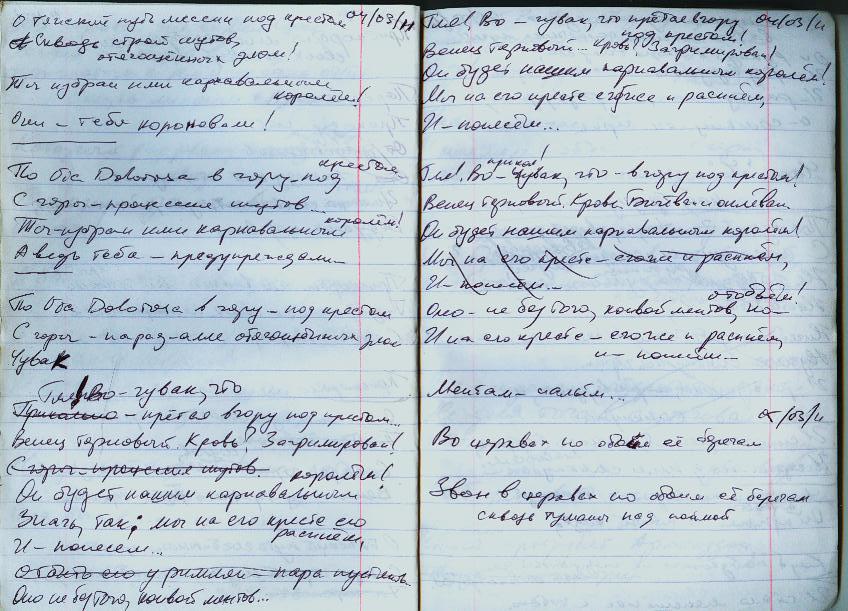 О тяжкий путь мессии под крестом 04/03/11
Сквозь строй шутов,
отягощённых злом!
Ты избран ими карнавальным
королём!
Они – тебя короновали!
По Via Dolorosa в гору – под
крестом
С горы – процессия шутов
Ты – избран ими карнавальным
королём!
А ведь тебя – предупреждали...
По Via Dolorosa в гору – под крестом
С горы – парад-алле отягощённых злом
Чувак
Гля! Во – чувак, что
Прикольно – прётся в гору под крестом...
Венец терновый. Кровь! Загримирован!
С горы – процессия шутов.
Он будет нашим карнавальным
королём!
Значь, так: мы на его кресте его
распнём,
И – понесём...
Отбить его у римлян – пара пустяков...
Оно не без того, конвой ментов...
Гля! Во – чувак, что прётся в гору 04/03/11
под крестом!
Венец терновый... Кровь! Загримирован!
Он будет нашим карнавальным королём!
Мы на его кресте его же и распнём,
И – понесём...
прикол!
Гля! Во – чувак, что – в гору под крестом!
Венец терновый. Кровь.
Он будет нашим карнавальным королём!
Мы на его кресте – его же и распнём,
И – понесём...
отобьём!
Оно – не без того, конвой ментов, но –
И на его кресте – его же и распнём,
и – понесём...
Ментам – нальём...
/03/11
Во церквах по обоим её берегам
Звон в церквах по обоим её берегам
сквозь туманы над поймой